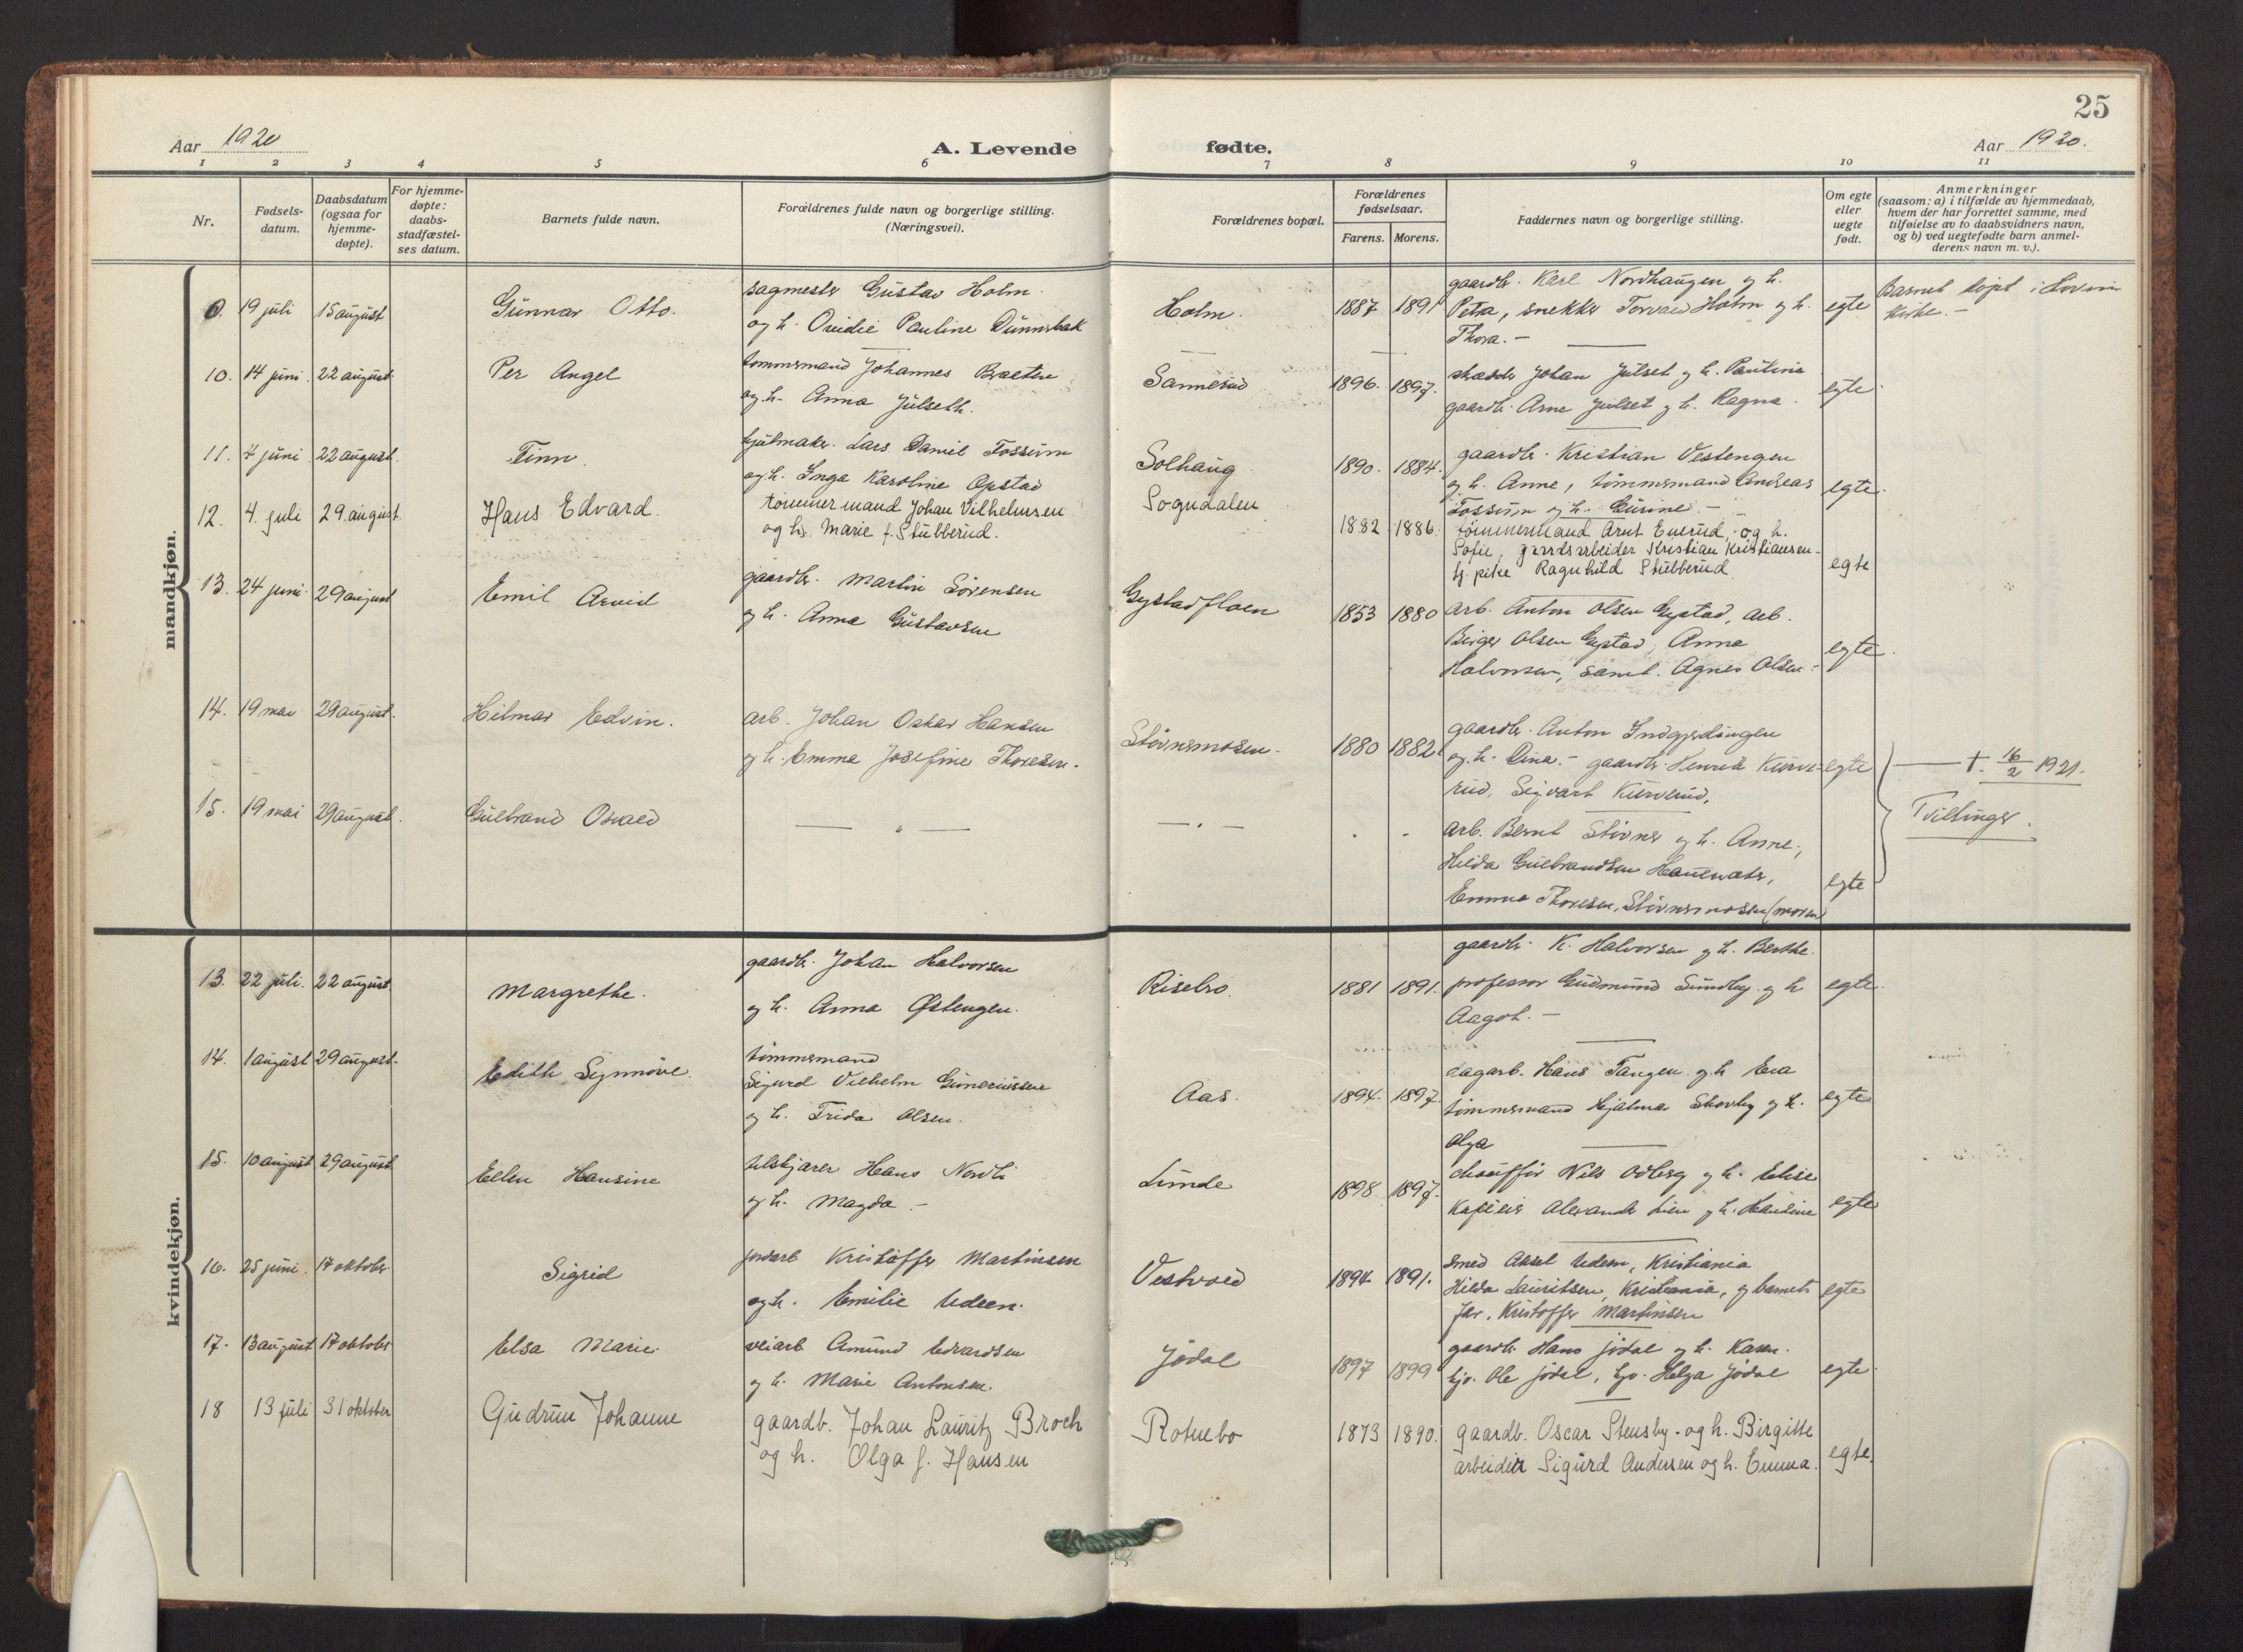 25
Aar 1920
A. Levende fødte.
Aar 1920.
1 2 3 4 5 6 7 8 9 10 11
Nr.
Fødsels-
datum.
Daabsdatum
(ogsaa for
hjemme-
døpte).
For hjemme-
døpte:
daabs-
stadfæstel-
ses datum.
Barnets fulde navn.
Forældrenes fulde navn og borgerlige stilling.
(Næringsvei).
Forældrenes bopæl.
Forældrenes
fødselsaar.
Farens. Morens.
Faddernes navn og borgerlige stilling.
Om egte
eller
uegte
født.
Anmerkninger
(saasom: a) i tilfælde av hjemmedaab,
hvem der har forrettet samme, med
tilføielse av to daabsvidners navn,
og b) ved uegtefødte barn anmel-
derens navn m. v.).
mandkjøn.
9. 19 juli 15 august Gunnar Otto.
sagmester Gustav Holm
og h. Ovidie Pauline Dünnebak
Holm. 1887 1891
gaardbr. Karl Nordhaugen og h.
Petra, snekker Torvald Holm og h.
Thora. -
egte
Barnet døpt i
kirke. -
10. 14 juni 22 august Per Angel
tømmermand Johannes Braaten
og h. Anna Julseth.
Sannerud 1896. 1897.
skrædder Johan Julset og h. Pauline
gaardbr. Arne Julset og h. Ragna.
egte
11. 4 juni 22 august. Finn.
hjulmaker Lars Daniel Fossum
og h. Inga Karoline Opstad
Solhaug 1890. 1884.
gaardbr. Kristian Vestengen
og h. Anne, tømmermand Andreas
Fossum og h. Gurine. -
egte.
12. 4. juli 29 august. Hans Edvard.
tømmermand Johan Vilhelmsen
og h. Marie f. Stubberud.
Sogndalen 1882 1886.
tømmermand Arnt Enerud, og h.
Sofie, gaardsarbeider Kristian Kristiansen
tj. pike Ragnhild Stubberud.
egte
13. 24 juni 29 august Emil Arvid
gaardbr. Martin Sørensen
og h. Anna Gustavsen
Gystadfloen 1853 1880
arb. Anton Olsen Gystad, arb.
Birger Olsen Gystad, Anna
Halvorsen, samt. Agnes Olsen -
egte.
14. 19 mai 29 august. Hilmar Edvin.
arb. Johan Oskar Hansen
og h. Emma Josefine Thoresen.
Støvnermosen. 1880 1882
gaardbr. Anton Indgjerdingen
og h. Dina. - gaardbr. Henrik Kurve-
rud, Sigvart Kurverud,
egte
†. 16/2 1921.
15. 19 mai 29 august. Gulbrand Osvald
— " —
— " —
arb. Bernt Støvner og h. Anne,
Hilda Gulbrandsen
Emma Thoresen, Støvnermosen (moren)
egte
Tvillinger.
kvindekjøn.
13. 22 juli. 22 august. Margrethe.
gaardbr. Johan Halvorsen
og h. Anna Østengen.
Risebro. 1881 1891.
gaardbr. K. Halvorsen og h. Berthe.
professor Gudmund Sundby og h
Aagot. -
egte.
14. 1 august 29 august. Edith Synnøve.
tømmermand
Sigurd Vilhelm Guneriussen
og h. Frida Olsen.
Aas. 1894. 1897.
dagarb. Hans Tangen og h Eva
tømmermand Hjalmar Skovby og h.
Olga
egte
15. 10 august 29 august. Ellen Hansine
Hans Nordli
og h. Magda. -
Linde 1898 1897.
chauffør Nils Odberg og h. Elise
Kaféeier Alexander Lien og h. Hansine
egte
16. 25 juni. 17 oktober. Sigrid
jordarb Kristoffer Martinsen
og h. Emilie Udeen.
Vestvold 1894 1891.
Smed Aksel Udeen, Kristiania
Hilda Lauritsen, Kristiania, og barnets
far, Kristoffer Martinsen
egte
17. 13 august 17 oktober Elsa Marie.
veiarb Amund Edvardsen
og h. Marie Antonsen.
Jødal 1897 1899
gaardbr. Hans Jødal og h. Karen.
tj. Ole Jødal, tj. Helga Jødal
egte.
18 13 juli 31 oktober Gudrun Johanne
gaardb. Johan Lauritz Broch
og h. Olga f. Hansen
Rotnebo 1873 1890.
gaardb. Oscar Stensby - og h. Birgitte
arbeider Sigurd Andersen og h. Emma.
egte.